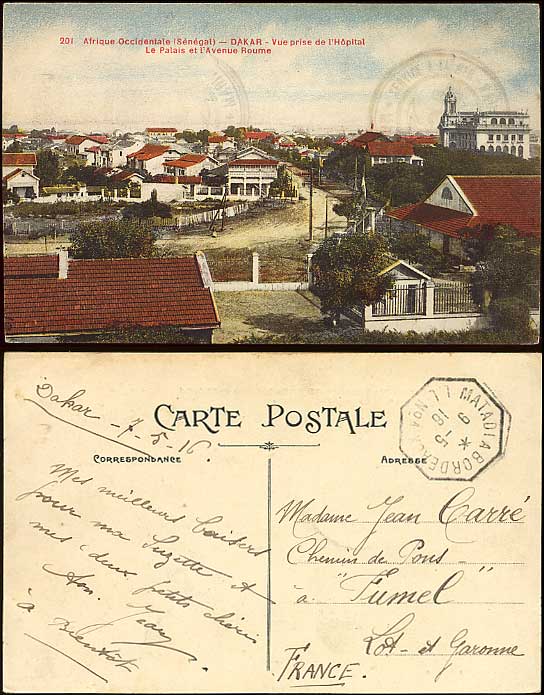 201 Afrique Occidentale (Sénégal) — DAKAR - Vue prise de l'Hôpital
Le Palais et l'Avenue Roume
Dakar - 7-5-16
CARTE POSTALE
CORRESPONDANCE
ADRESSE
MATADI A BORDEAUX
L.L. Nº
9
* 5
Mes meilleurs baisers
pour ma Suzette et
mes deux petits chéris
Ton Jean
à Bientôt
Madame Jean Carré
Chemin de Pons -
à "Fumel"
Lot - et Garonne
FRANCE.